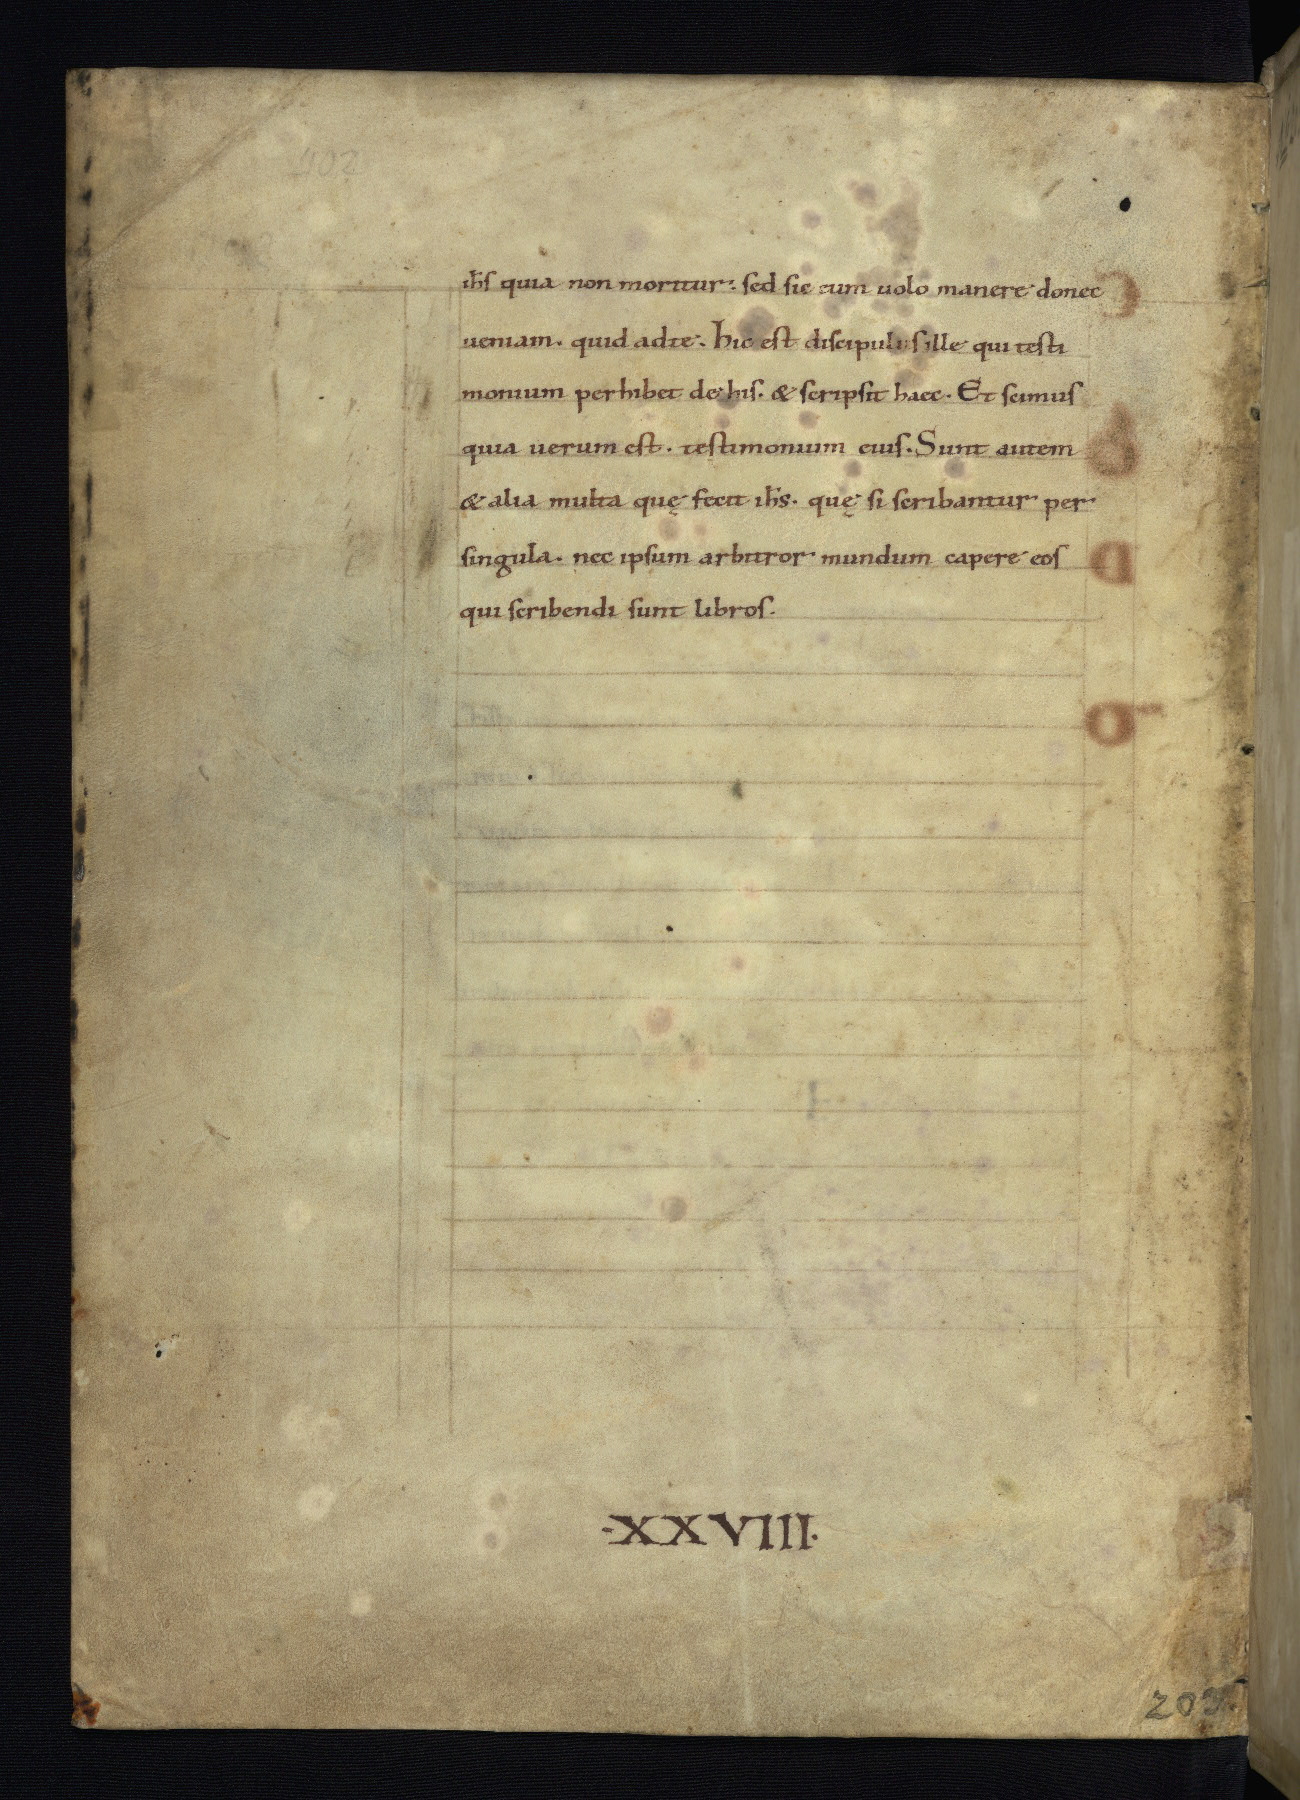 402
ihs quia non moritur. sed sic eum uolo manere donec
ueniam. quid adte. hic est discipulus ille qui testi
monium perhibet de his. & scripsit haec. Et scimus
quia uerum est. testimonium eius. Sunt autem
& alia multa quę fecit ihs. quę si scribantur per
singula. nec ipsum arbitror mundum capere eos
qui scribendi sunt libros.
·XXVIII·